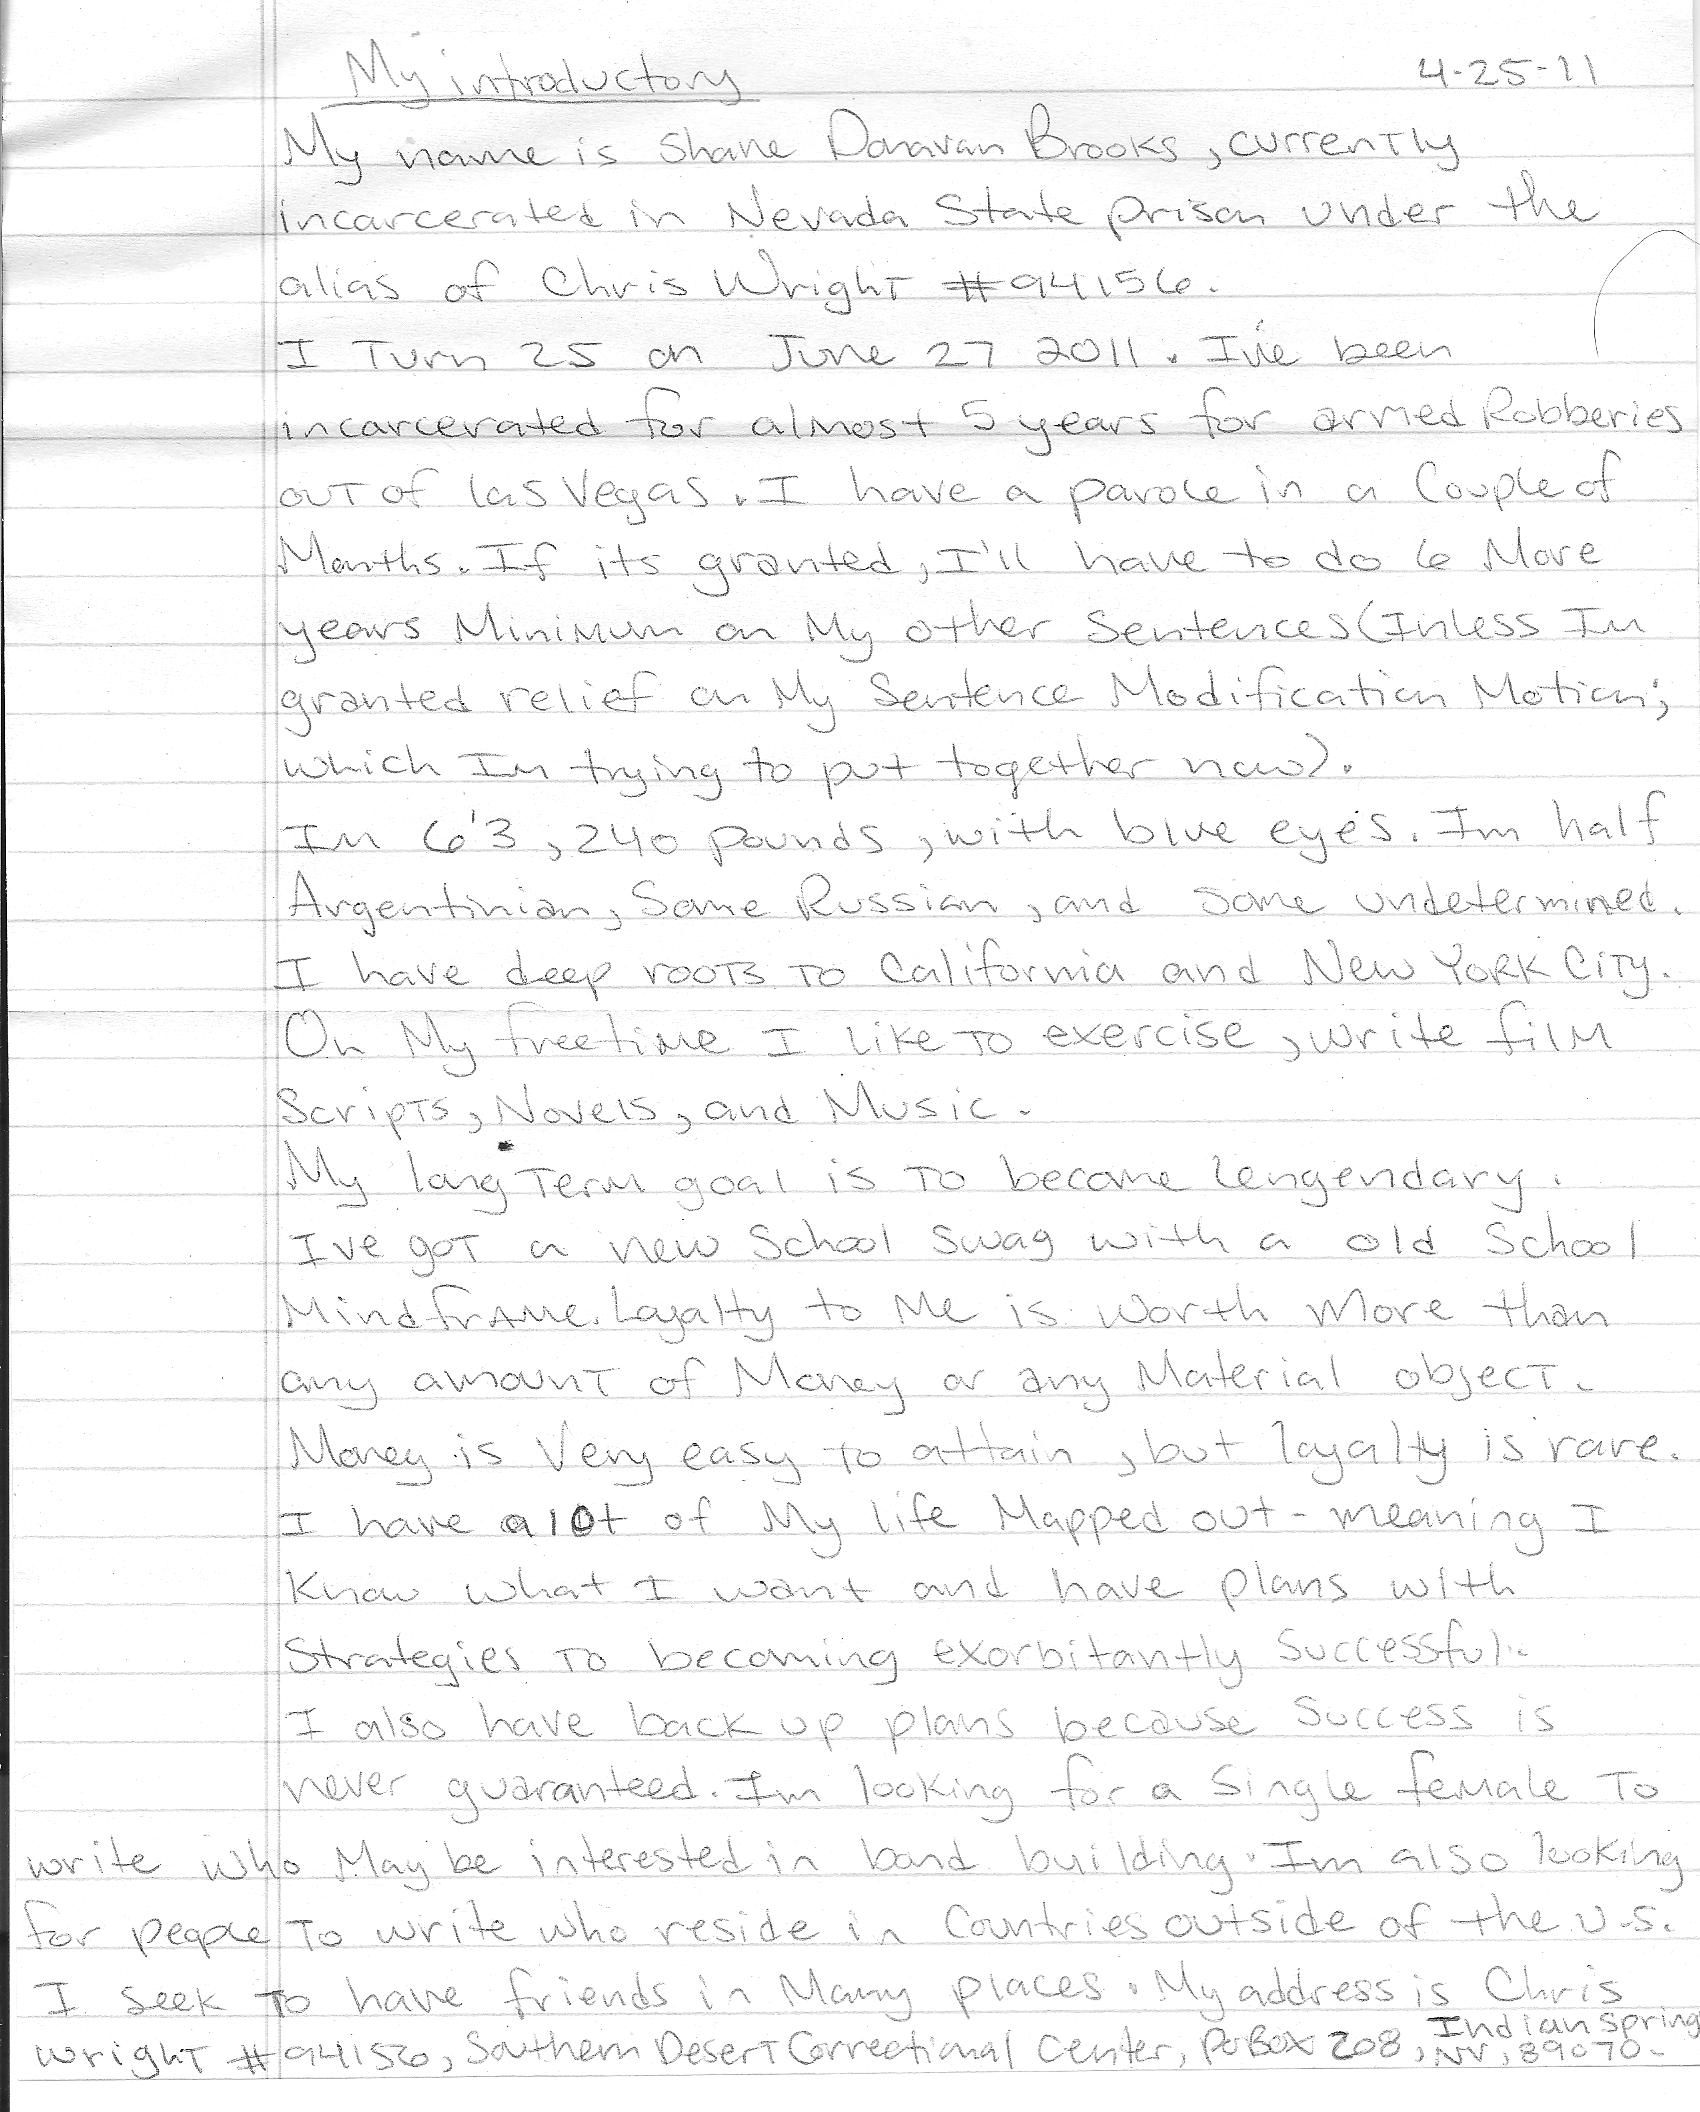 My introductory 4-25-11
My name is Shane Donavan Brooks, currently
incarcerated in Nevada State prison under the
alias of Chris Wright #94156.
I Turn 25 on June 27 2011. I've been
incarcerated for almost 5 years for armed Robberies
out of Las Vegas. I have a parole in a Couple of
Months. If its granted, I'll have to do 6 More
years Minimum on My other Sentences (Inless Im
granted relief on My Sentence Modification Motion;
which Im trying to put together now).
Im 6'3, 240 pounds, with blue eyes. Im half
Argentinian, Some Russian, and some undetermined.
I have deep roots to California and New York City.
On My freetime I like to exercise, write film
Scripts, Novels, and Music.
My long Term goal is to become lengendary.
Ive got a new School swag with a old School
Mindframe. Loyalty to Me is worth more than
any amount of Money or any Material object.
Money is Very easy to attain, but loyalty is rare.
I have alot of My life Mapped out - meaning I
Know what I want and have plans with
Strategies to becoming exorbitantly Successful.
I also have back up plans because Success is
never guaranteed. Im looking for a Single female to
write who May be interested in bond building. Im also looking
for people to write who reside in Countries outside of the U.S.
I seek to have friends in Many places. My address is Chris
Wright #94156, Southern Desert Correctional Center, PO Box 208, Indian Spring
NV, 89070.